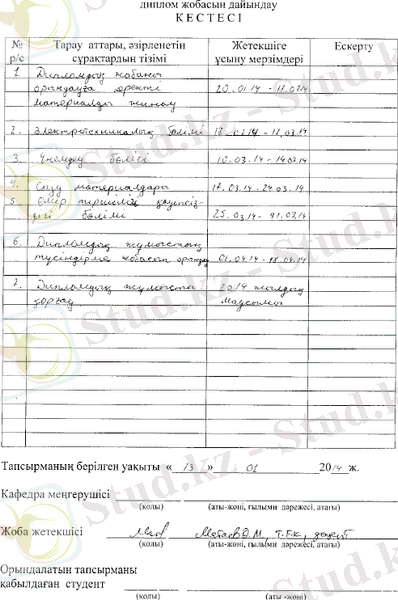 диплом жобасын дайындау
КЕСТЕСІ
№ р/с
Тарау аттары, әзірленетін сұрақтардың тізімі
Жетекшіге ұсыну мерзімдері
Ескерту
1. Дипломдық жобаны
орындауға
материалды жинау
20.01.14 -
2. Электротехникалық бөлімі
- 13.03.14
3. бөлімі 10.03.14 - 14.03.14
4. материалдары 17.03.14 - 24.03.14
5. Өмір тіршілігі қауіпсіз-
дігі бөлімі 25.03.14 - 31.03.14
6. Дипломдық жұмыстың
түсіндірме жобасын 01.04.14 - 18.04.14
7. Дипломдық жұмысты 2014 жылдың
қорғау маусымы
Тапсырманың берілген уақыты « 13 » 01 2014 ж.
Кафедра меңгерушісі
(қолы) (аты-жөні, ғылыми дәрежесі, атағы)
Жоба жетекшісі т.ғ.к., доцент
(қолы) (аты-жөні, ғылыми дәрежесі, атағы)
Орындалатын тапсырманы
қабылдаған студент
(қолы) (аты -жөні)
Stud.kz - Stud.kz